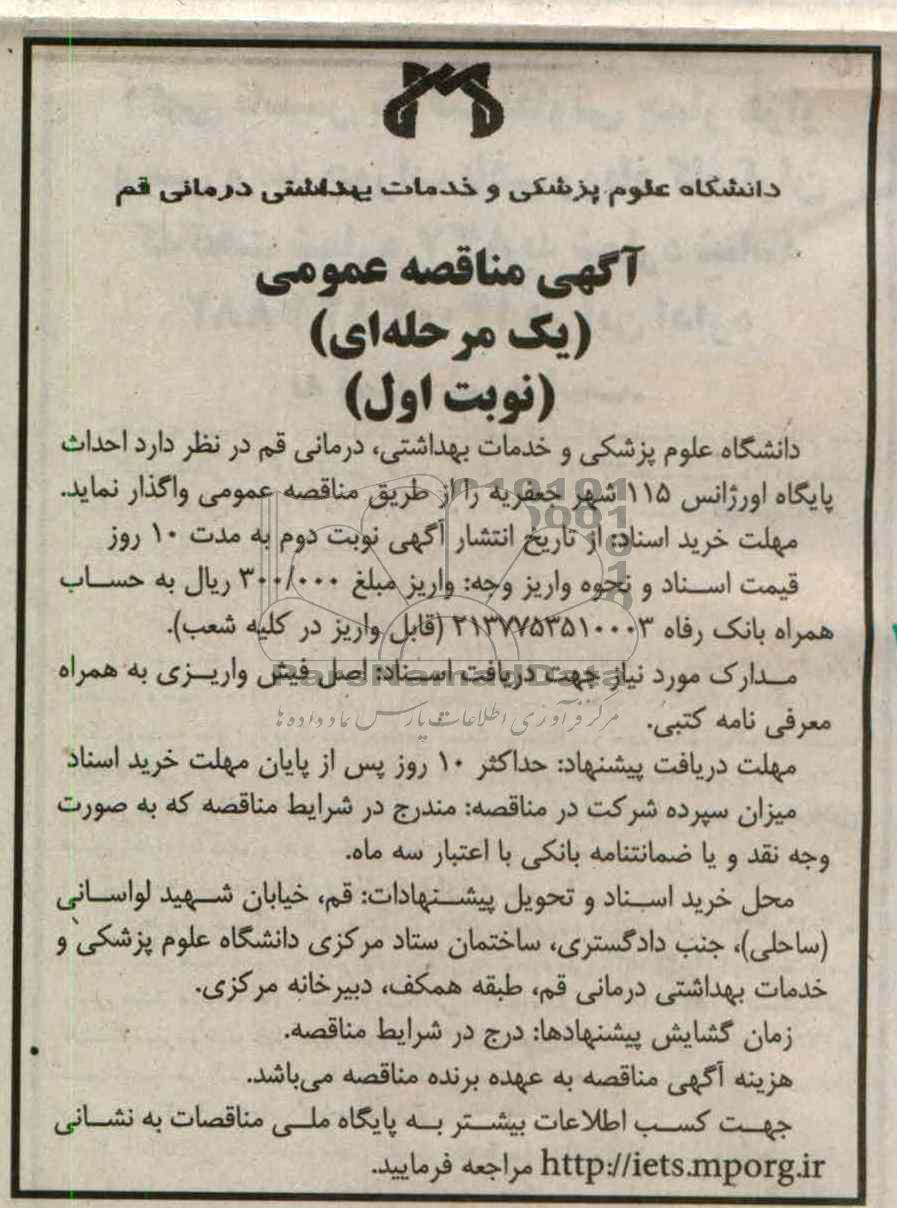 دانشگاه علوم پزشکی و خدمات بهداشتی درمانی قم
آگهی مناقصه عمومی
(یک مرحله‌ای)
(نوبت اول)
دانشگاه علوم پزشکی و خدمات بهداشتی، درمانی قم در نظر دارد احداث
پایگاه اورژانس ۱۱۵ شهر جعفریه را از طریق مناقصه عمومی واگذار نماید.
مهلت خرید اسناد: از تاریخ انتشار آگهی نوبت دوم به مدت ۱۰ روز
قیمت اسناد و نحوه واریز وجه: واریز مبلغ ۳۰۰/۰۰۰ ریال به حساب
همراه بانک رفاه ۲۱۳۷۷۵۳۵۱۰۰۰۳ (قابل واریز در کلیه شعب).
مدارک مورد نیاز جهت دریافت اسناد: اصل فیش واریزی به همراه
معرفی نامه کتبی.
مهلت دریافت پیشنهاد: حداکثر ۱۰ روز پس از پایان مهلت خرید اسناد
میزان سپرده شرکت در مناقصه: مندرج در شرایط مناقصه که به صورت
وجه نقد و یا ضمانتنامه بانکی با اعتبار سه ماه.
محل خرید اسناد و تحویل پیشنهادات: قم، خیابان شهید لواسانی
(ساحلی)، جنب دادگستری، ساختمان ستاد مرکزی دانشگاه علوم پزشکی و
خدمات بهداشتی درمانی قم، طبقه همکف، دبیرخانه مرکزی.
زمان گشایش پیشنهادها: درج در شرایط مناقصه.
هزینه آگهی مناقصه به عهده برنده مناقصه می‌باشد.
جهت کسب اطلاعات بیشتر به پایگاه ملی مناقصات به نشانی
http://iets.mporg.ir مراجعه فرمایید.
ParsNamadData
مرکز فرآوری اطلاعات پارس نماد داده ها